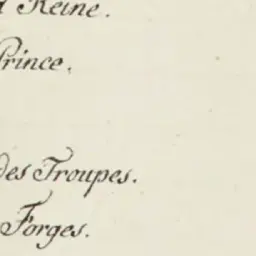 Reine.
Prince.
des Troupes.
Forges.